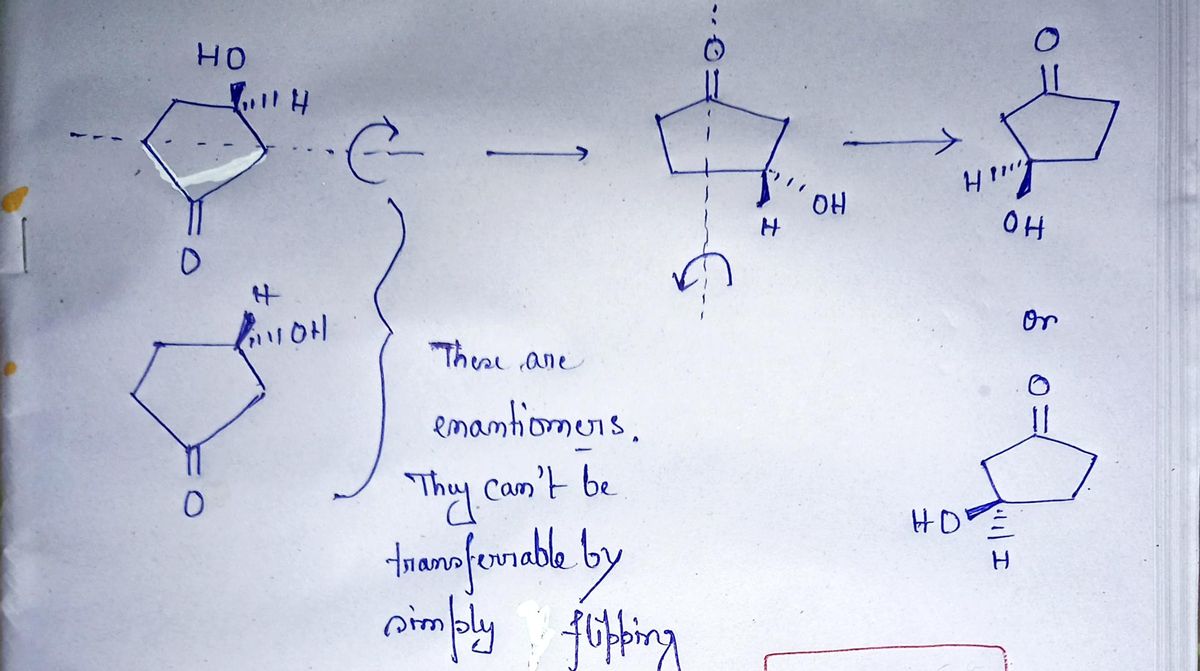 HO
H
O
H
OH
O
O
OH
H
O
H
OH
or
O
HO
H
These are
enantiomers.
They can't be
transferrable by
simply flipping